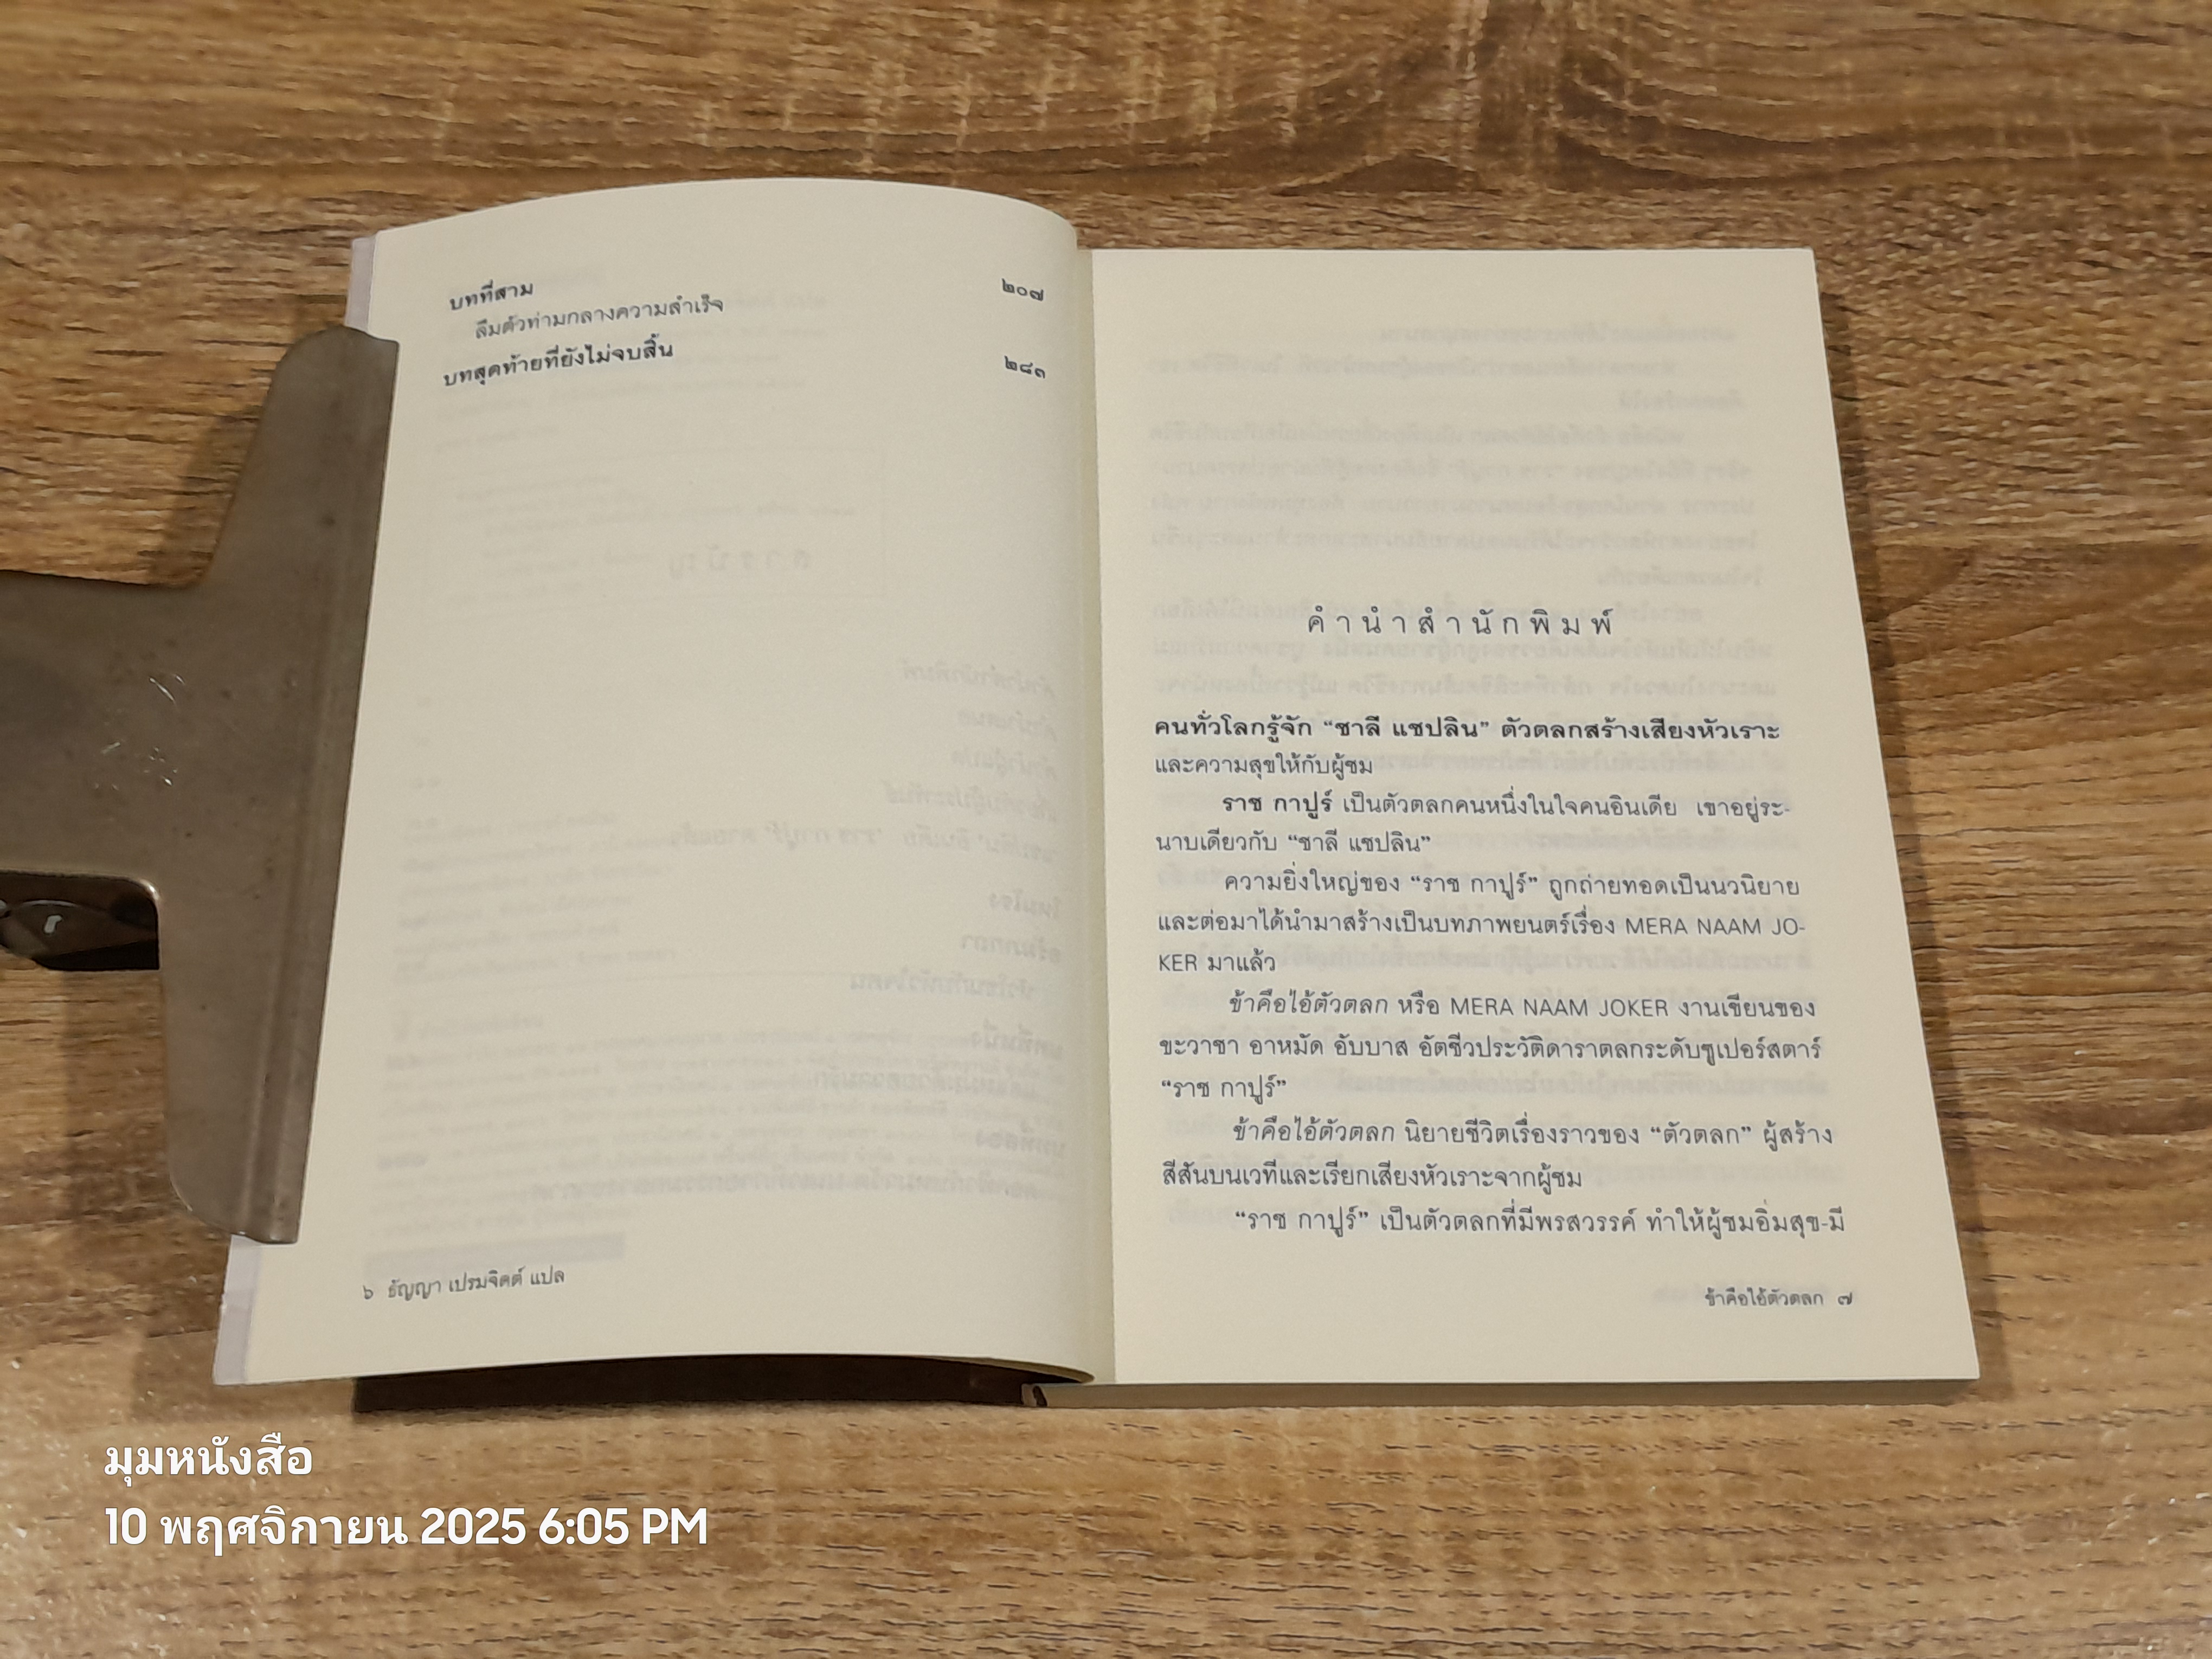 บทที่สาม ๒๐๗
ลืมตัวท่ามกลางความสำเร็จ
บทสุดท้ายที่ยังไม่จบสิ้น ๒๘๓
๖ ธัญญา เปรมจิตต์ แปล
คำนำสำนักพิมพ์
คนทั่วโลกรู้จัก “ชาลี แชปลิน” ตัวตลกสร้างเสียงหัวเราะ
และความสุขให้กับผู้ชม
ราช กาปูร์ เป็นตัวตลกคนหนึ่งในใจคนอินเดีย เขาอยู่ระ-
นาบเดียวกับ “ชาลี แชปลิน”
ความยิ่งใหญ่ของ “ราช กาปูร์” ถูกถ่ายทอดเป็นนวนิยาย
และต่อมาได้นำมาสร้างเป็นบทภาพยนตร์เรื่อง MERA NAAM JO-
KER มาแล้ว
ข้าคือไอ้ตัวตลก หรือ MERA NAAM JOKER งานเขียนของ
ขะวาชา อาหมัด อับบาส อัตชีวประวัติดาราตลกระดับซูเปอร์สตาร์
“ราช กาปูร์”
ข้าคือไอ้ตัวตลก นิยายชีวิตเรื่องราวของ “ตัวตลก” ผู้สร้าง
สีสันบนเวทีและเรียกเสียงหัวเราะจากผู้ชม
“ราช กาปูร์” เป็นตัวตลกที่มีพรสวรรค์ ทำให้ผู้ชมอิ่มสุข-มี
ข้าคือไอ้ตัวตลก ๗
มุมหนังสือ
10 พฤศจิกายน 2025 6:05 PM